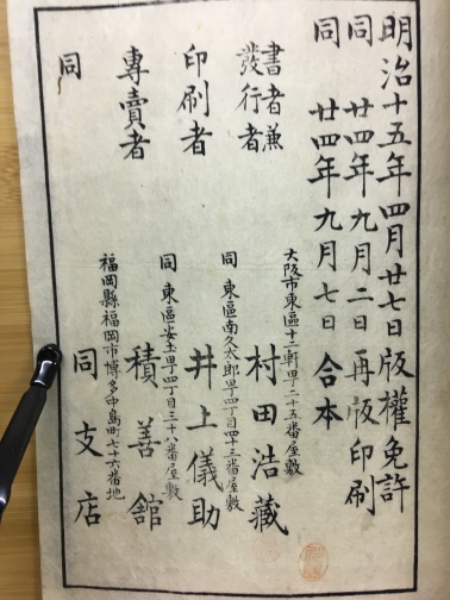 明治十五年四月廿七日版權免許
同 廿四年九月二日再版印刷
同 廿四年九月七日合本
大阪市東區十二軒町二十五番屋敷
書者兼發行者 村田浩藏
同 東區南久太郎町四丁目四十三番屋敷
印刷者 井上儀助
同 東區安土町四丁目三十八番屋敷
專賣者 積善舘
福岡縣福岡市博多中島町七十六番地
同 同支店